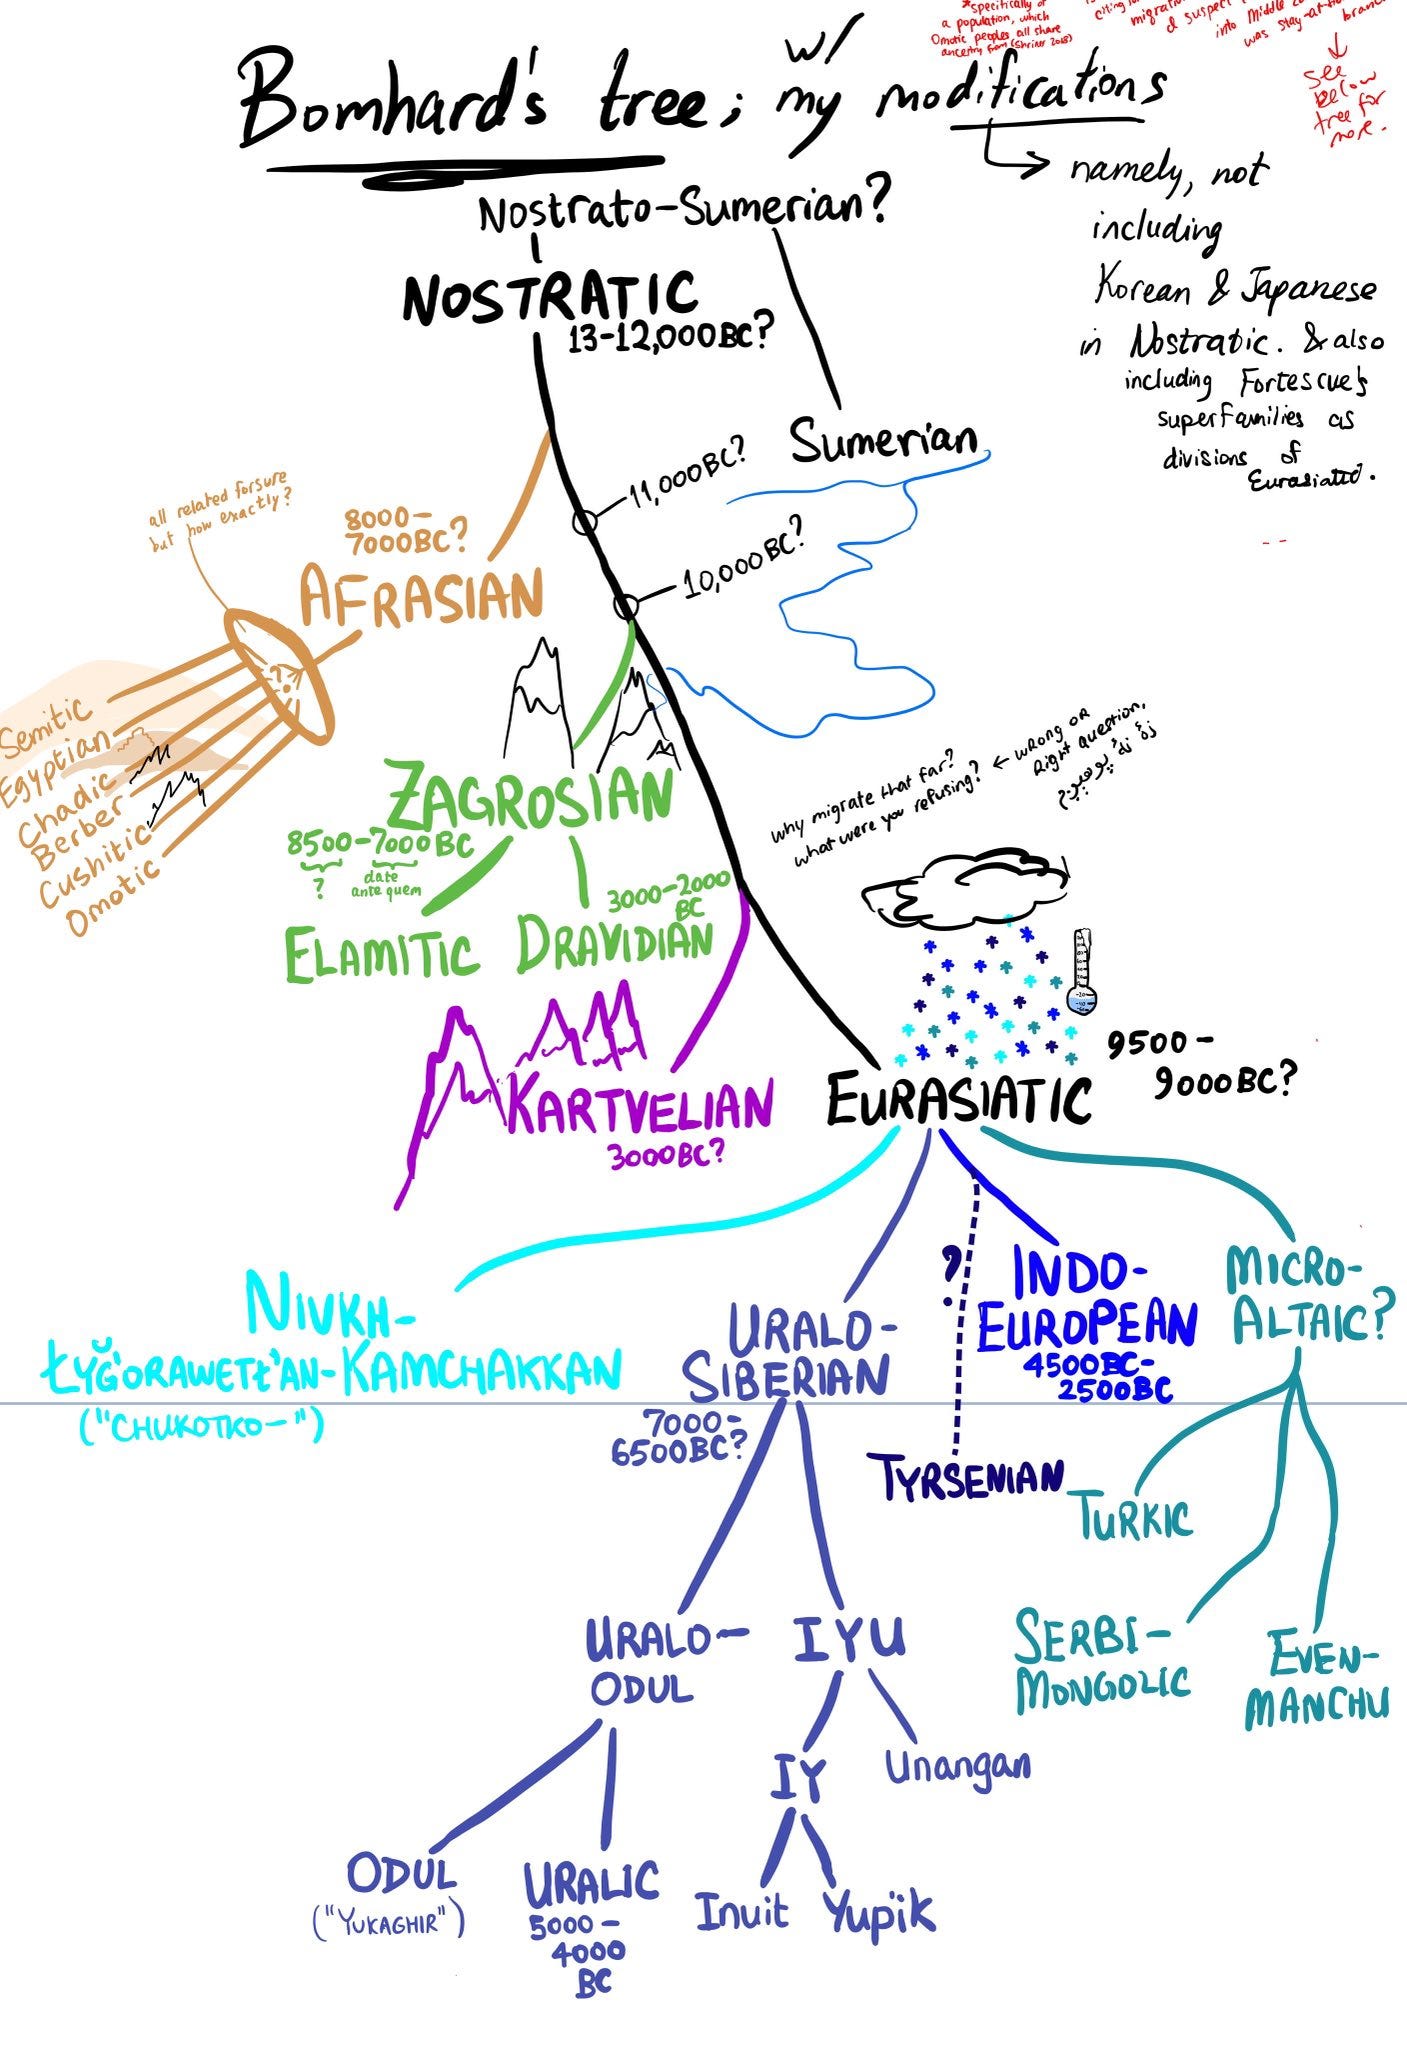 *specifically of
a population, which
Omotic peoples all share
ancestry from (Shriner 2018)
migration
& suspect
into Middle
was stay-at-home
branch
see
below
tree for
more.
Bomhard's tree; w/ my modifications
namely, not
including
Korean & Japanese
in Nostratic. & also
including Fortescue's
superfamilies as
divisions of
Eurasiatic.
Nostrato-Sumerian?
NOSTRATIC
13-12,000BC?
Sumerian
11,000BC?
10,000BC?
all related forsure
but how exactly?
8000-
7000BC?
AFRASIAN
?
Semitic
Egyptian
Chadic
Berber
Cushitic
Omotic
ZAGROSIAN
8500-7000BC
?
date
ante quem
3000-2000
BC
ELAMITIC
DRAVIDIAN
why migrate that far?
what were you refusing?
← wrong or
Right question,
KARTVELIAN
3000BC?
EURASIATIC
9500-
9000BC?
NIVKH-
ŁYĞORAWETŁ'AN-KAMCHAKKAN
("CHUKOTKO-")
URALO-
SIBERIAN
7000-
6500BC?
?
INDO-
EUROPEAN
4500BC-
2500BC
MICRO-
ALTAIC?
TYRSENIAN
TURKIC
SERBI-
MONGOLIC
EVEN-
MANCHU
URALO-
ODUL
IYU
IY
Unangan
ODUL
("YUKAGHIR")
URALIC
5000-
4000
BC
Inuit
Yup'ik